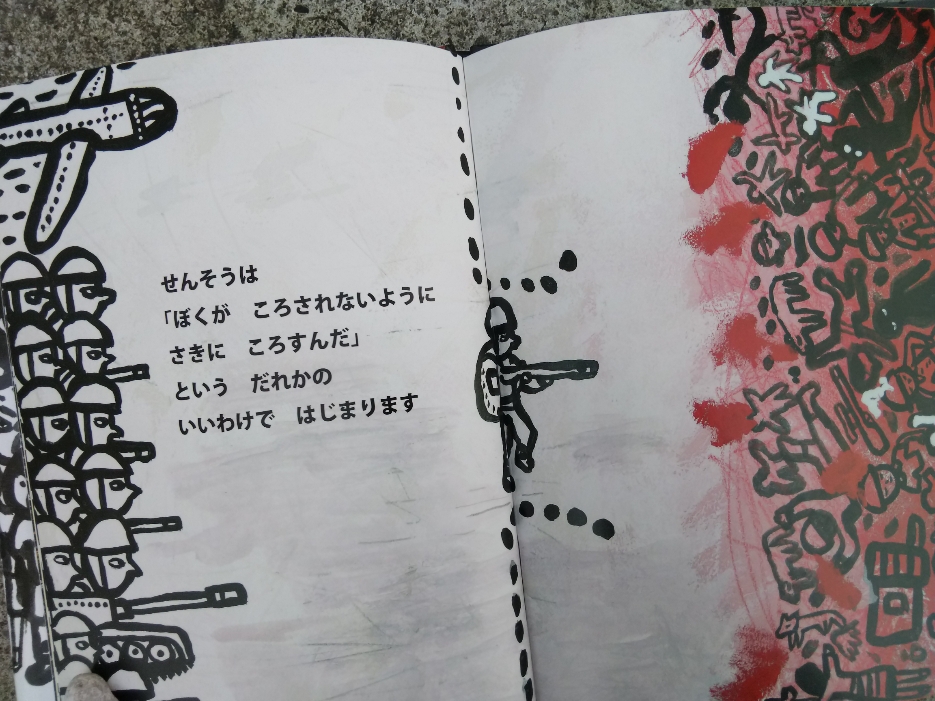 せんそうは
「ぼくが　ころされないように
さきに　ころすんだ」
という　だれかの
いいわけで　はじまります